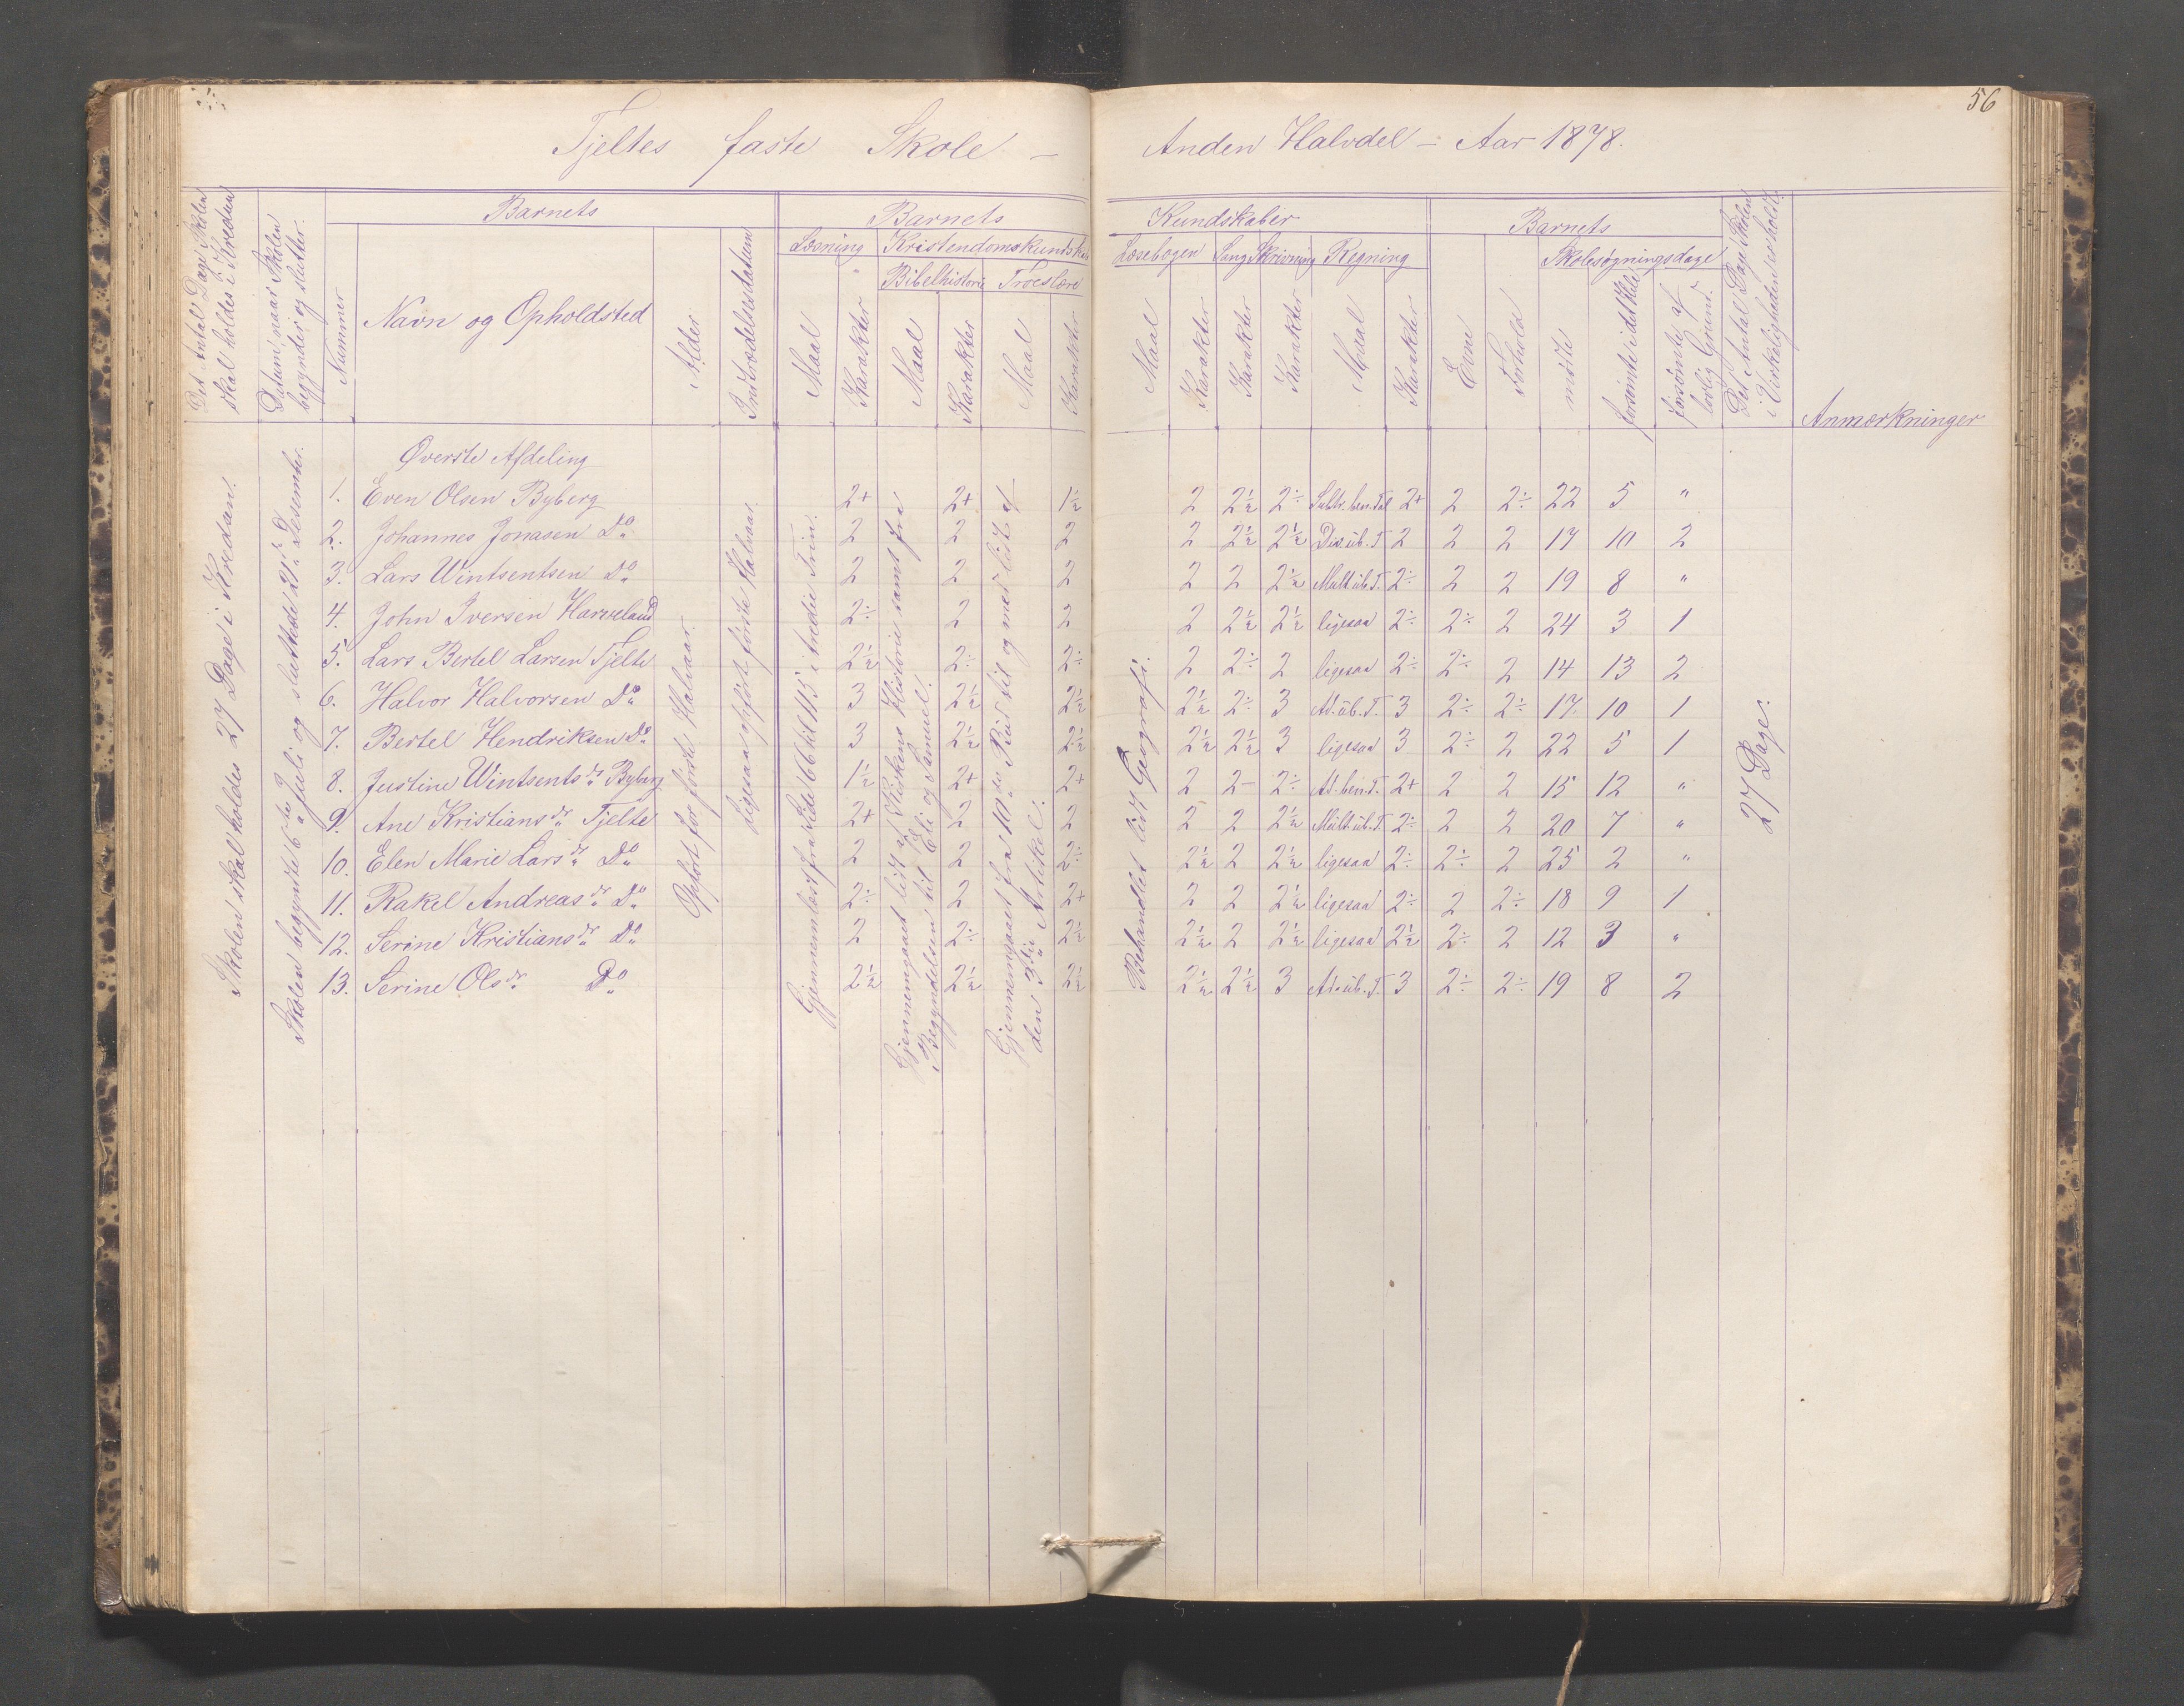 56
Tjeltes faste Skole – Anden Halvdel – Aar 1878.
Det Antal Dage Skolen skal holdes i Kredsen
Datum, naar Skolen begynder og slutter.
Barnets
Nummer
Navn og Opholdsted
Alder
Indtrædelsesdatum
Barnets Kundskaber
Læsning
Maal
Karakter
Kristendomskundskab
Bibelhistorie
Maal
Karakter
Troeslære
Maal
Karakter
Læsebogen
Maal
Karakter
Sang
Karakter
Skrivning
Karakter
Regning
Maal
Karakter
Barnets
Evne
Forhold
Skolesøgningsdage
mødte
forsømte i det Hele
forsømte af lovlig Grund.
Det Antal Dage Skolen i Virkeligheden er holdt.
Anmærkninger
Skolen skal holdes 27 Dage i Kredsen.
Skolen begyndte 6te Juli og sluttede 21de Desember.
Opført for første Halvaar.
Ligesaa opført første Halvaar.
Gjennemlæst fra Side 66 til 115 i Andre Trin.
Gjennemgaaet lidt af Kirkens Historie samt fra Begyndelsen til Eli og Samuel.
Gjennemgaaet fra 10de Bud til og med lidt af den 3die Artikel.
Behandlet lidt Geografi.
27 Dage.
Øverste Afdeling
1. Even Olsen Byberg 2+ 2+ 1½ 2 2½ 2÷ Subtr. ben. Tal 2+ 2 2÷ 22 5 "
2. Johannes Jonasen Do 2 2 2 2 2½ 2½ Div. ub. T 2 2 2 17 10 2
3. Lars Wintsentsen Do 2 2 2 2 2 2½ Mult. ub. T. 2÷ 2 2 19 8 "
4. John Iversen Harveland 2÷ 2 2 2 2½ 2½ ligesaa 2÷ 2÷ 2 24 3 1
5. Lars Bertel Larsen Tjelte 2½ 2÷ 2÷ 2 2÷ 2 ligesaa 2÷ 2÷ 2 14 13 2
6. Halvor Halvorsen Do 3 2½ 2½ 2½ 2÷ 3 Ad. ub. T. 3 2÷ 2÷ 17 10 1
7. Bertel Hendriksen Do 3 2½ 2½ 2½ 2½ 3 ligesaa 3 2÷ 2 22 5 1
8. Justine Wintsentsdr Byberg 1½ 2+ 2+ 2 2– 2÷ Ad. ben. T. 2+ 2 2 15 12 "
9. Ane Kristiansdr Tjelte 2+ 2 2 2 2 2½ Mult. ub. T. 2÷ 2 2 20 7 "
10. Elen Marie Larsdr Do 2 2 2÷ 2½ 2 2½ ligesaa 2÷ 2÷ 2 25 2 "
11. Rakel Andreasdr Do 2÷ 2 2+ 2 2 2½ ligesaa 2÷ 2 2÷ 18 9 1
12. Serine Kristiansdr Do 2 2÷ 2½ 2½ 2 2½ ligesaa 2½ 2÷ 2 12 3 "
13. Serine Olsdr Do 2½ 2½ 2½ 2½ 2½ 3 Ad. ub. T. 3 2÷ 2÷ 19 8 2